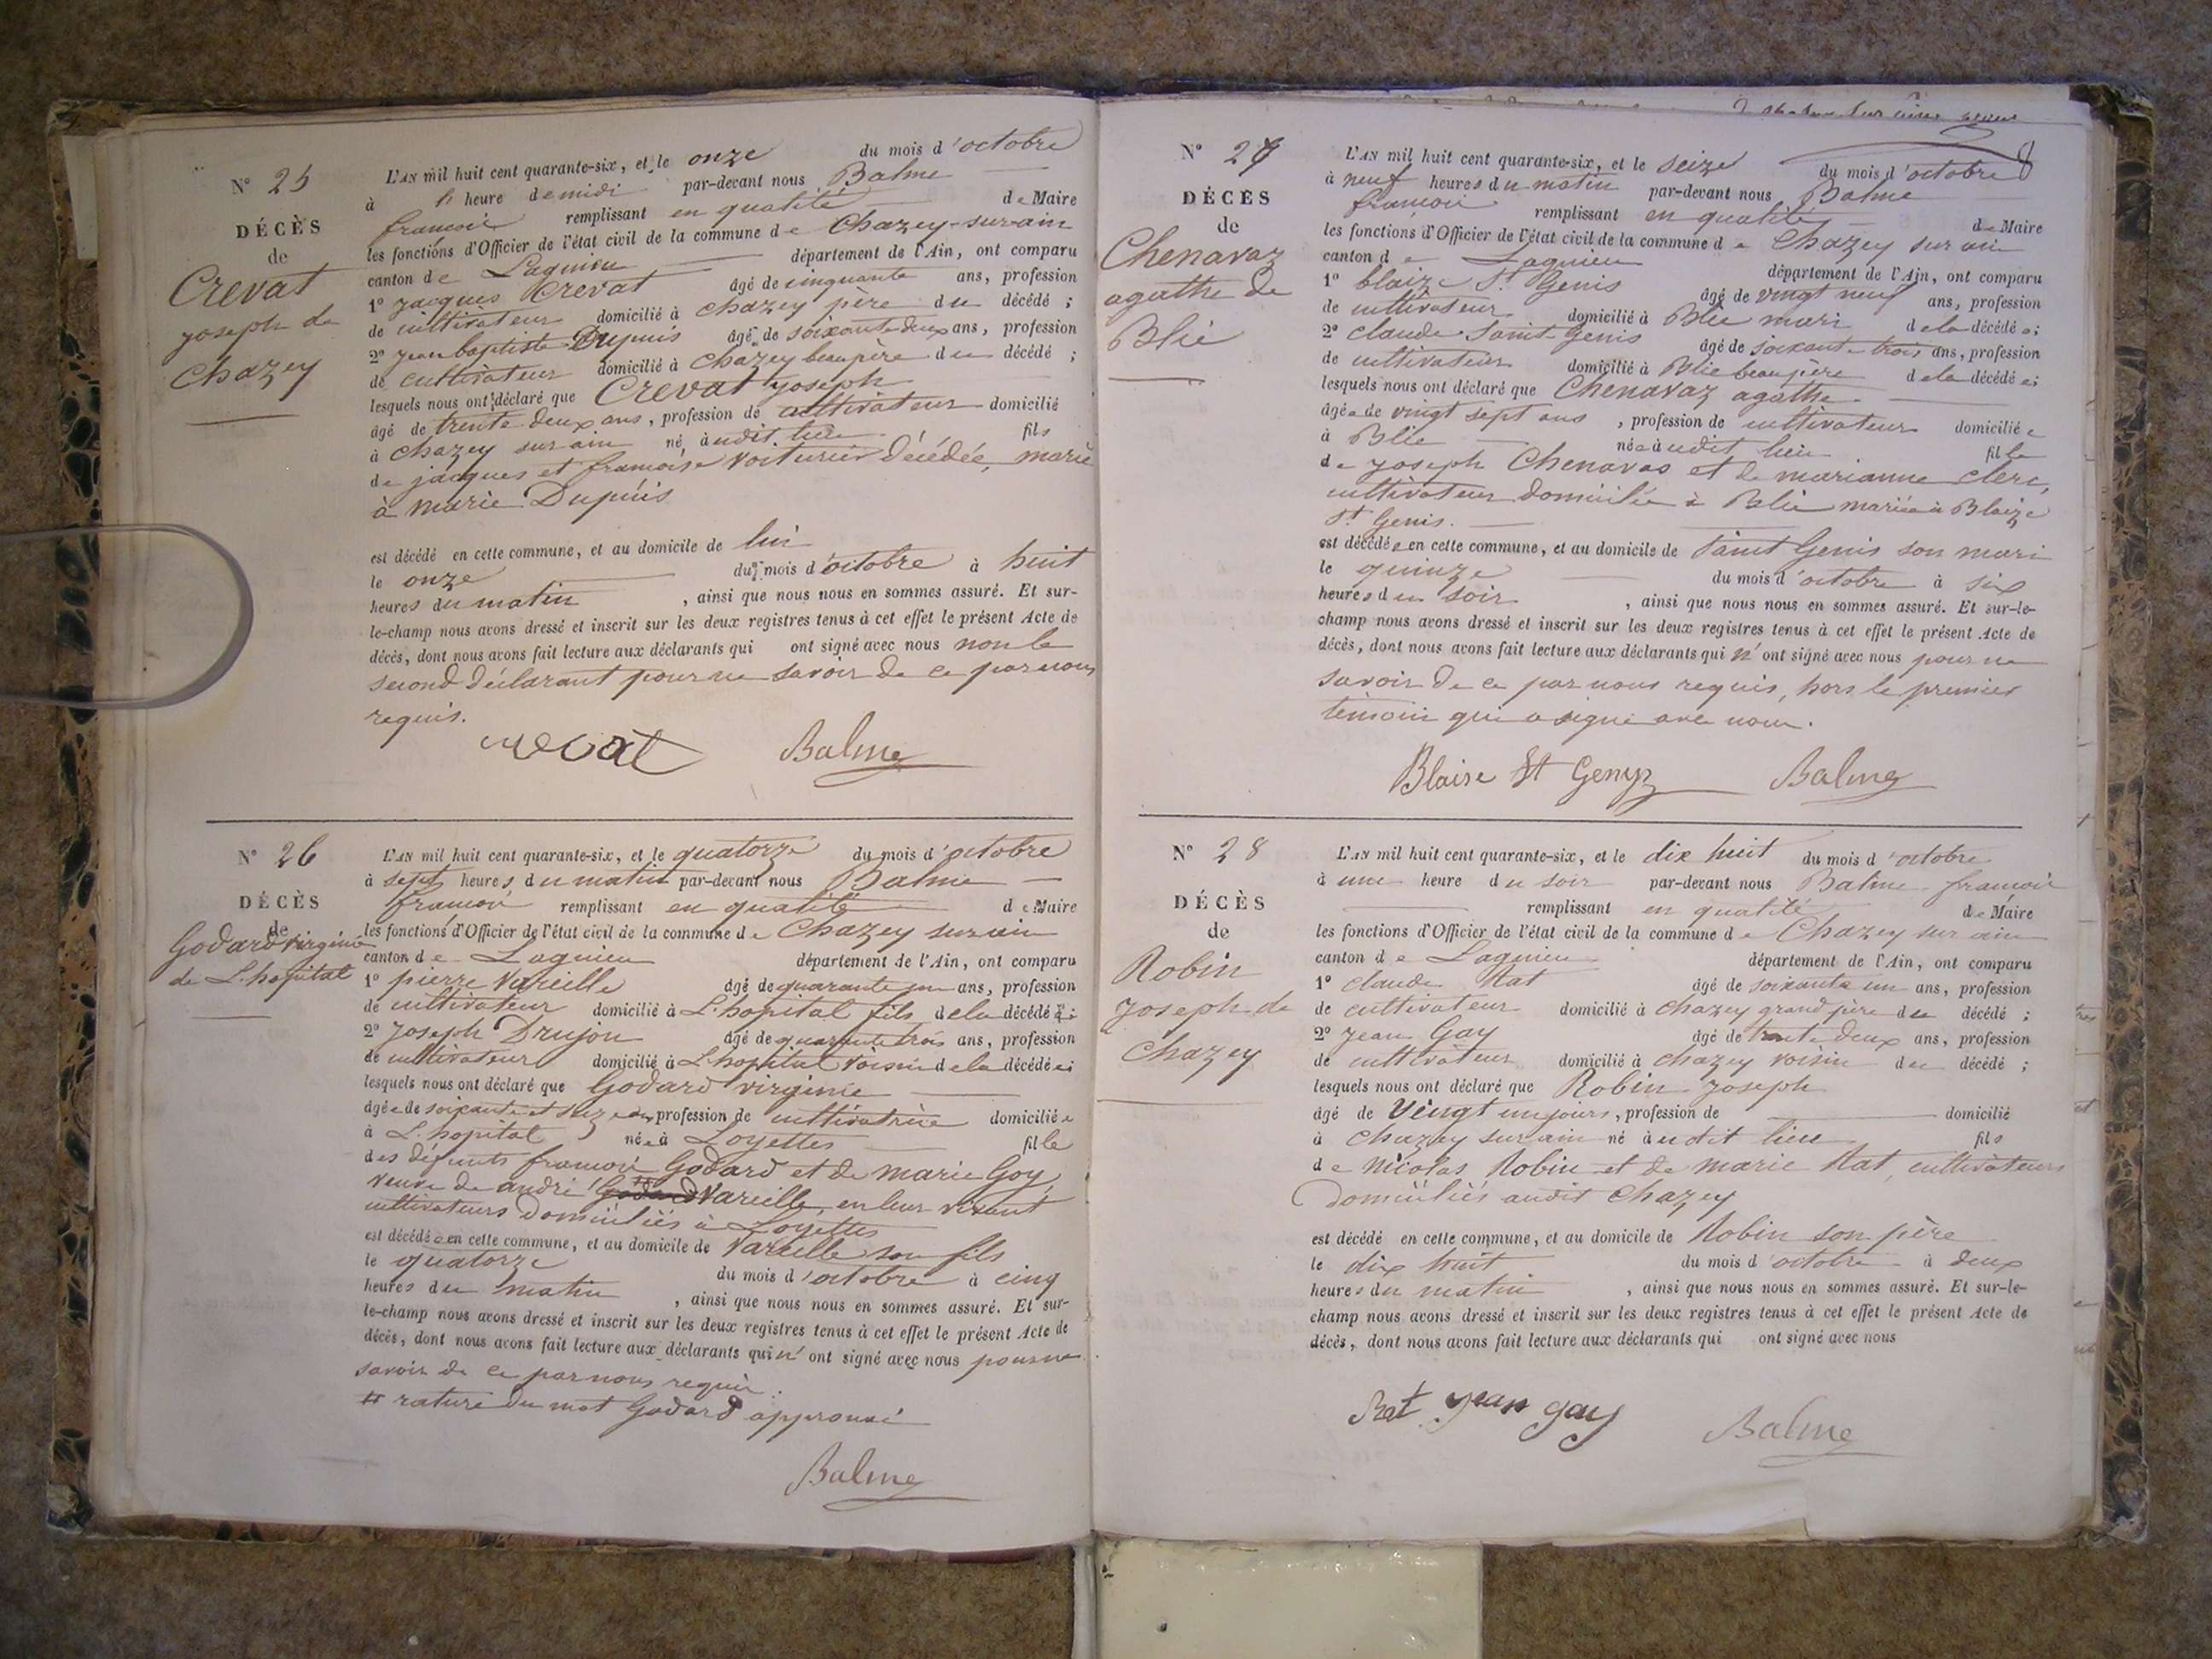 N° 25
DÉCÈS
de
Crevat
joseph de
Chazey
L'AN mil huit cent quarante-six, et le onze du mois d'octobre
à l' heure de midi par-devant nous Balme
françois remplissant en qualité de Maire
les fonctions d'Officier de l'état civil de la commune de Chazey-sur-ain
canton de Lagnieu département de l'Ain, ont comparu
1° jacques Crevat âgé de cinquante ans, profession
de cultivateur domicilié à Chazey père du décédé ;
2° jean baptiste Dupuis âgé de soixante deux ans, profession
de cultivateur domicilié à Chazey beau père du décédé ;
lesquels nous ont déclaré que Crevat joseph
âgé de trente deux ans, profession de cultivateur domicilié
à Chazey sur ain né àudit lieu fils
de jacques et françoise voiturier décédée, marié
à marie Dupuis
est décédé en cette commune, et au domicile de lui
le onze du mois d'octobre à huit
heures du matin , ainsi que nous nous en sommes assuré. Et sur-
le-champ nous avons dressé et inscrit sur les deux registres tenus à cet effet le présent Acte de
décès, dont nous avons fait lecture aux déclarants qui ont signé avec nous non le
second déclarant pour ne savoir de ce par nous
requis.
crevat Balme
N° 26
DÉCÈS
de
Godard virginie
de L'hopital
L'AN mil huit cent quarante-six, et le quatorze du mois d'octobre
à sept heures du matin par-devant nous Balme
françois remplissant en qualité de Maire
les fonctions d'Officier de l'état civil de la commune de Chazey sur ain
canton de Lagnieu département de l'Ain, ont comparu
1° pierre Vareille âgé de quarante un ans, profession
de cultivateur domicilié à L'hopital fils dela décédée ;
2° Joseph Drujon âgé de quarante trois ans, profession
de cultivateur domicilié à L'hopital voisin dela décédée ;
lesquels nous ont déclaré que Godard virginie
âgée de soixante et seize ans profession de cultivatrice domiciliée
à L'hopital née à Loyettes fille
des défunts françois Godard et de marie Goy,
veuve de andré Godard Vareille, en leur vivant
cultivateurs domiciliés à Loyettes
est décédée en cette commune, et au domicile de Vareille son fils
le quatorze du mois d'octobre à cinq
heures du matin , ainsi que nous nous en sommes assuré. Et sur-
le-champ nous avons dressé et inscrit sur les deux registres tenus à cet effet le présent Acte de
décès, dont nous avons fait lecture aux déclarants qui n' ont signé avec nous pour ne
savoir de ce par nous requis.
# rature du mot Godard approuvé
Balme
8
N° 27
DÉCÈS
de
Chenavaz
agathe de
Blie
L'AN mil huit cent quarante-six, et le seize du mois d'octobre
à neuf heures du matin par-devant nous Balme
françois remplissant en qualité de Maire
les fonctions d'Officier de l'état civil de la commune de Chazey sur ain
canton de Lagnieu département de l'Ain, ont comparu
1° blaize St Genis âgé de vingt neuf ans, profession
de cultivateur domicilié à Blie mari dela décédée ;
2° claude Saint-Genis âgé de soixante-trois ans, profession
de cultivateur domicilié à Blie beau père dela décédée ;
lesquels nous ont déclaré que Chenavaz agathe
âgée de vingt sept ans , profession de cultivateur domiciliée
à Blie née àudit lieu fille
de joseph Chenavas et de marianne clerc,
cultivateur domiciliée à Blie mariée à Blaize
St Genis.
est décédée en cette commune, et au domicile de Saint Genis son mari
le quinze du mois d'octobre à six
heures du soir , ainsi que nous nous en sommes assuré. Et sur-le-
champ nous avons dressé et inscrit sur les deux registres tenus à cet effet le présent Acte de
décès, dont nous avons fait lecture aux déclarants qui n' ont signé avec nous pour ne
savoir de ce par nous requis, hors le premier
témoin qui a signé avec nous.
Blaise St Genyz Balme
N° 28
DÉCÈS
de
Robin
joseph de
Chazey
L'AN mil huit cent quarante-six, et le dix huit du mois d'octobre
à une heure du soir par-devant nous Balme françois
remplissant en qualité de Maire
les fonctions d'Officier de l'état civil de la commune de Chazey sur ain
canton de Lagnieu département de l'Ain, ont comparu
1° claude Rat âgé de soixante un ans, profession
de cultivateur domicilié à Chazey grand père du décédé ;
2° jean Gay âgé de trente deux ans, profession
de cultivateur domicilié à chazey voisin du décédé ;
lesquels nous ont déclaré que Robin joseph
âgé de Vingt un jours, profession de domicilié
à Chazey sur ain né à udit lieu fils
de Nicolas Robin et de marie Rat, cultivateurs
domiciliés audit Chazey
est décédé en cette commune, et au domicile de Robin son père
le dix huit du mois d'octobre à deux
heures du matin , ainsi que nous nous en sommes assuré. Et sur-le-
champ nous avons dressé et inscrit sur les deux registres tenus à cet effet le présent Acte de
décès, dont nous avons fait lecture aux déclarants qui ont signé avec nous
Rat jean gay Balme